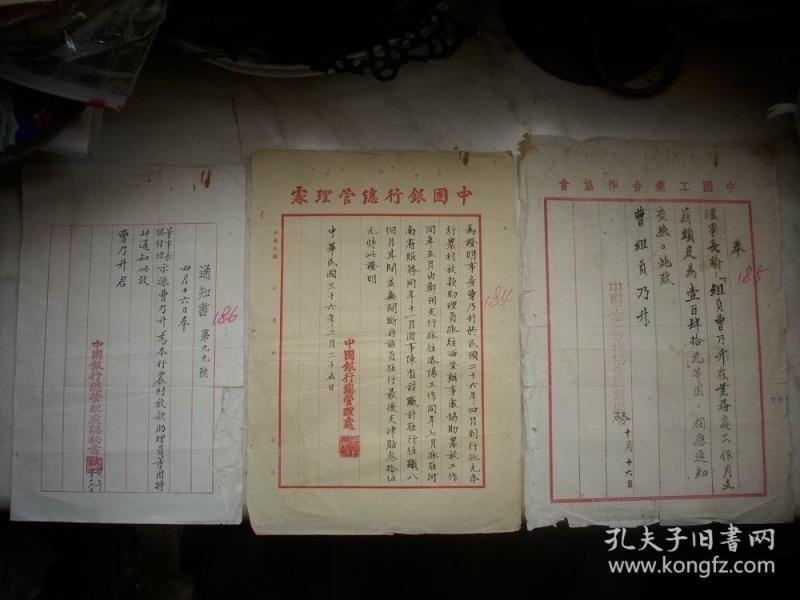 通知書 第九九號
四月十六日奉
董事長
總經理 示派曹乃升為本行農村放款助理員等因特
此通知此致
曹乃升君
中國銀行總管理處總秘書
186
中國銀行總管理處
為證明事查曹乃升於民國二十六年四月到行派充本
行農村放款助理員派往西安辦事處協助農放工作
同年五月由鄭州支行派往洛陽工作同年七月派在河
南省服務同年十一月因事陳准辭職計在行任職八
個月其間並無間斷再該員在行最後支津貼叁拾伍
元特此證明
中國銀行總管理處
中華民國三十六年二月二十五日
184
中國工業合作協會
奉
理事長諭「組員曹乃升在業務處工作月支
薪額定為壹百肆拾元等因」相應通知
查照。此致
曹組員乃升
啓 十月十六日
185
孔夫子旧书网
www.kongfz.com